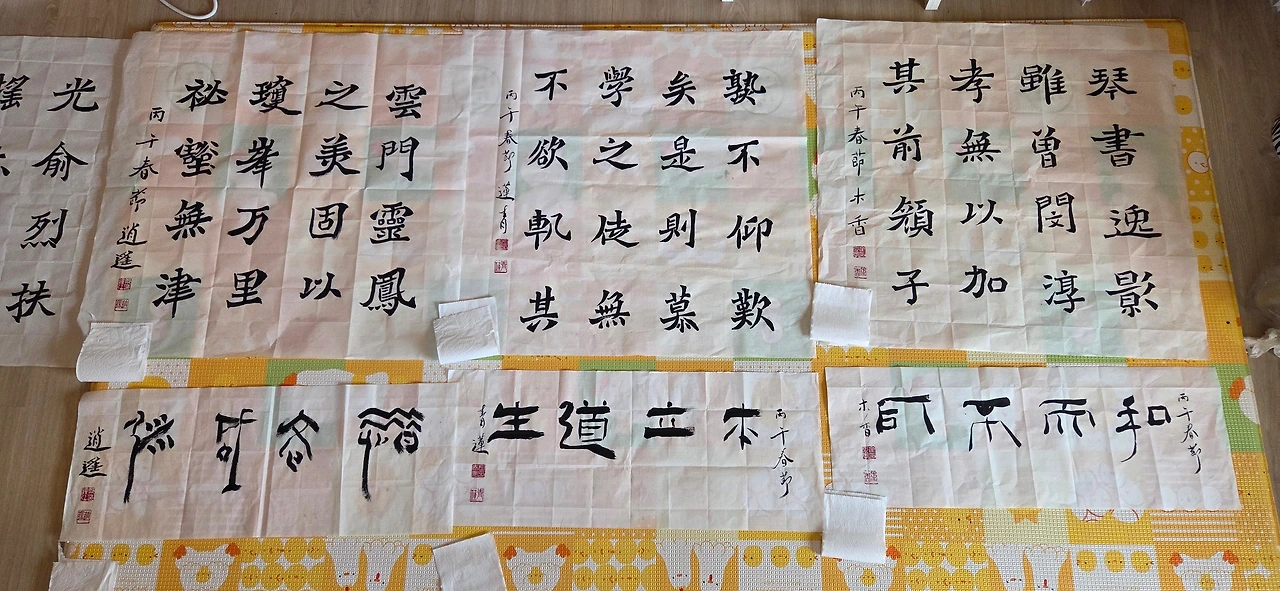 琴書逸影
雖曽閔淳
孝無以加
其前子
丙午春節 木香
不仰歎
矣是則慕
學之徒無
不欲軌其
丙午春節 蓮青
雲門靈鳳
之美固以
瓊峯万里
祕壑無津
丙午春節 逍遥
光俞烈扶
丙午春節
和而不同
木香
丙午春節
本立道生
青蓮
逍遥